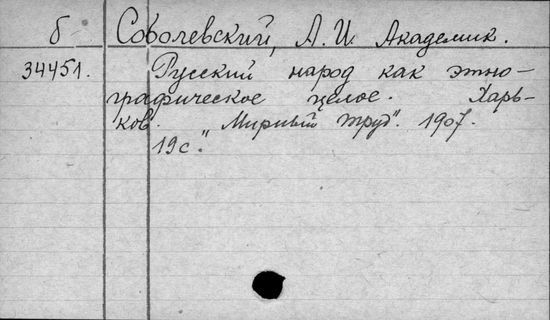 б Соболевский, А. И. Академик.
34451. Русский народ как этно-
графическое целое. Харь-
ков. "Мирный труд". 1907.
19 с.